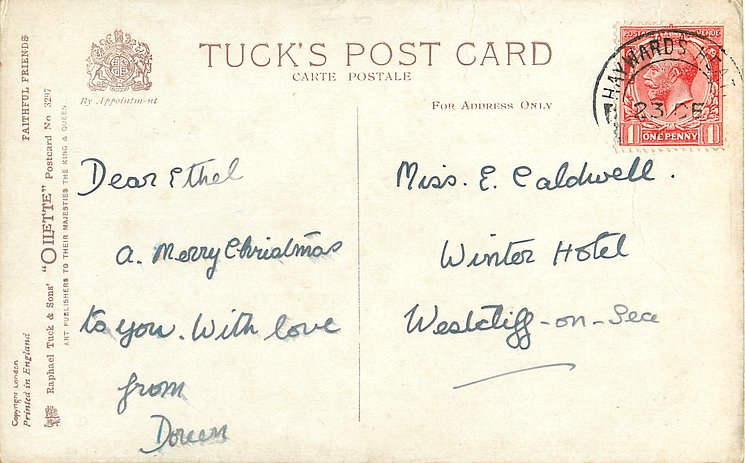 TUCK'S POST CARD
CARTE POSTALE
By Appointment
FOR ADDRESS ONLY
POSTAGE REVENUE
HAYWARDS HEATH
23 DE
1 ONE PENNY 1
Dear Ethel
a. Merry Christmas
to you. With love
from
Doreen
Miss. E. Caldwell.
Winter Hotel
Westcliff-on-Sea
FAITHFUL FRIENDS
Raphael Tuck & Sons' "OILETTE" Postcard No 3297
ART PUBLISHERS TO THEIR MAJESTIES THE KING & QUEEN.
Copyright London
Printed in England